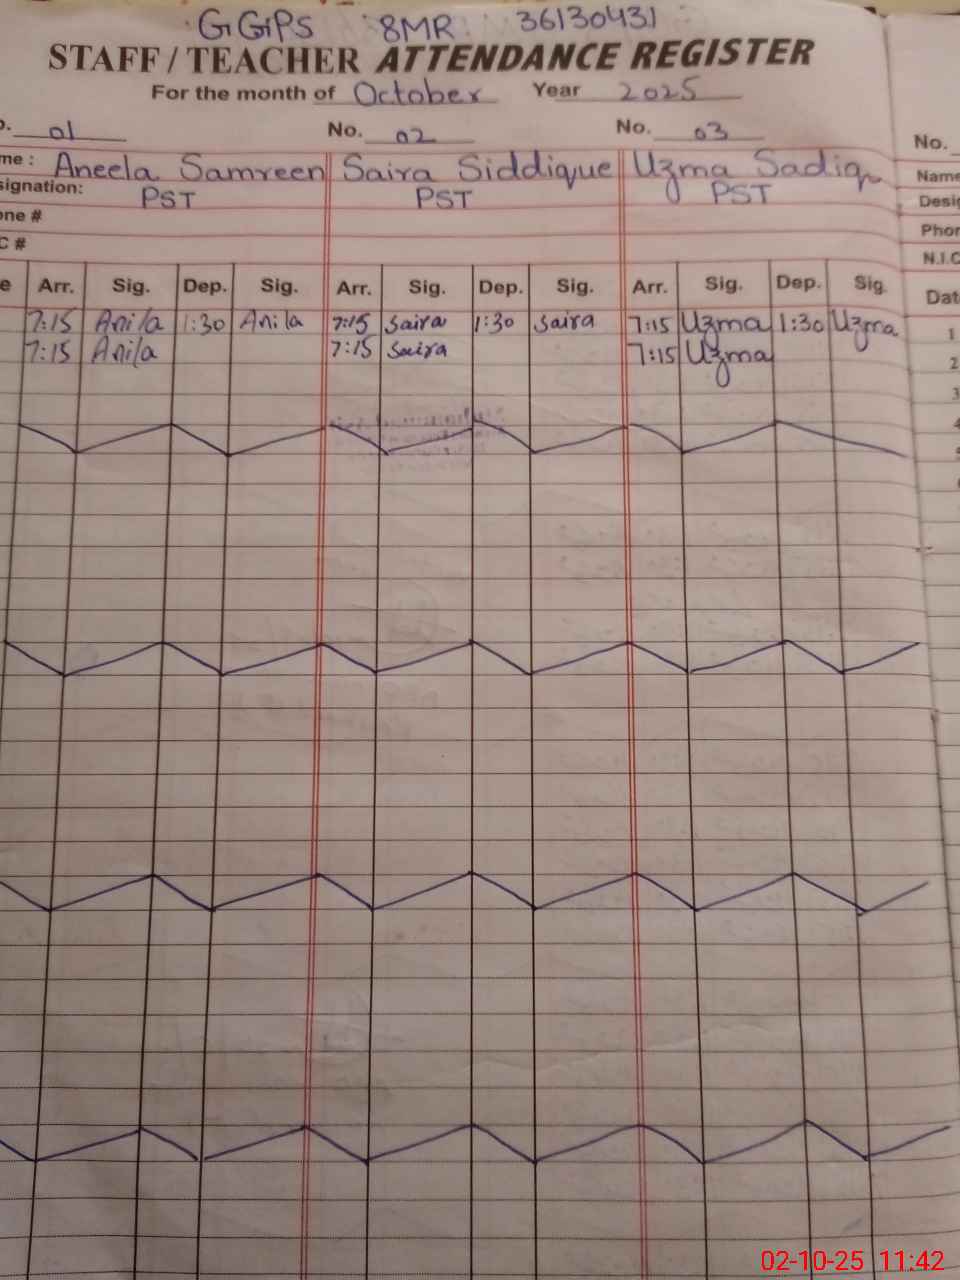 GGPS 8MR 36130431
STAFF / TEACHER ATTENDANCE REGISTER
For the month of October Year 2025
01 No. 02 No. 03 No.
Aneela Samreen Saira Siddique Uzma Sadiq Name
signation: PST PST PST Desig
one # Phon
C # N.I.C
e Arr. Sig. Dep. Sig. Arr. Sig. Dep. Sig. Arr. Sig. Dep. Sig Dat
7:15 Anila 1:30 Anila 7:15 Saira 1:30 Saira 7:15 Uzma 1:30 Uzma 1
7:15 Anila 7:15 Saira 7:15 Uzma 2
3
4
02-10-25 11:42